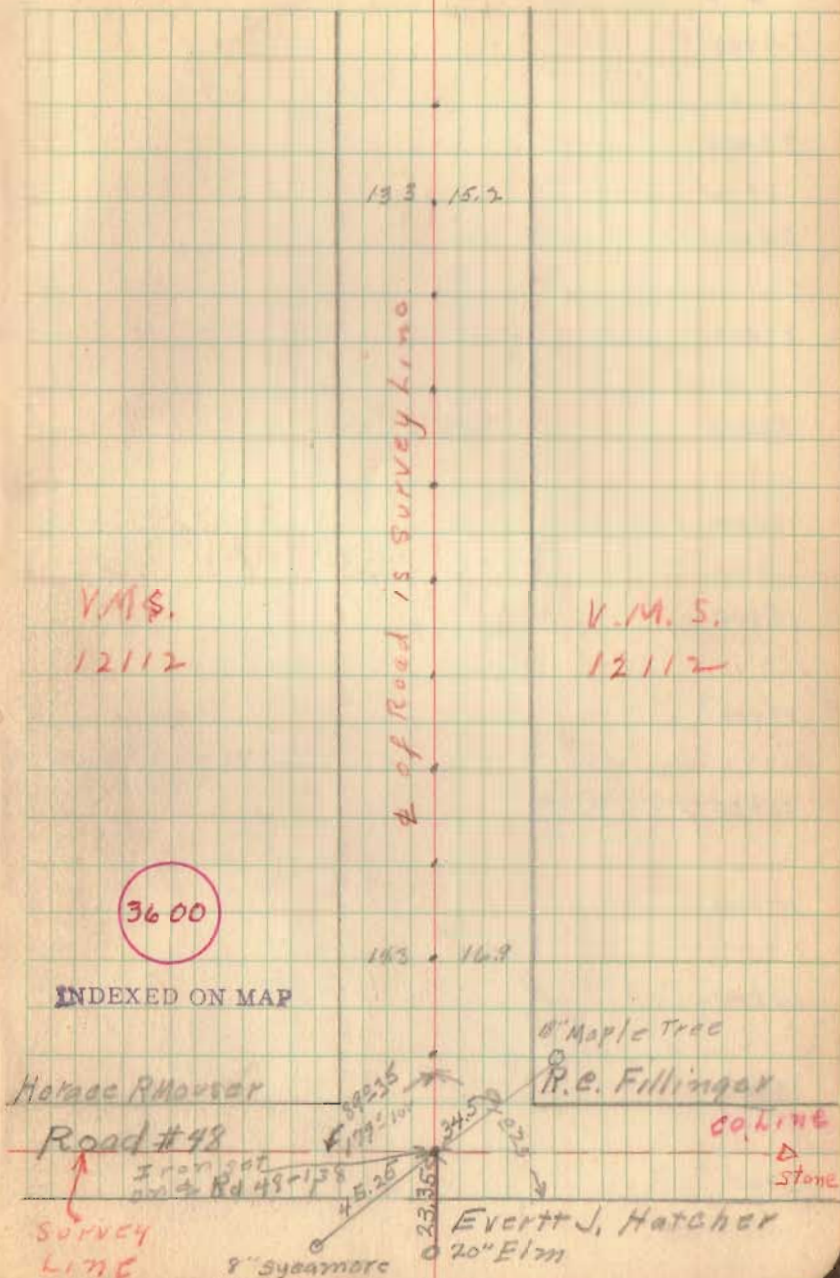 13.3 15.2
℄ of Road is Survey Line
V.M.S.
12112
V.M.S.
12112
36 00
INDEXED ON MAP
16.9
Maple Tree
Horace R Mouser
R.C. Fillinger
89°35
34.5
Co. Line
Road #48
Iron set
on ℄ Rd 48-1.38
Stone
45.25
23.35
Survey
Line
Evertt J. Hatcher
20" Elm
8" Sycamore